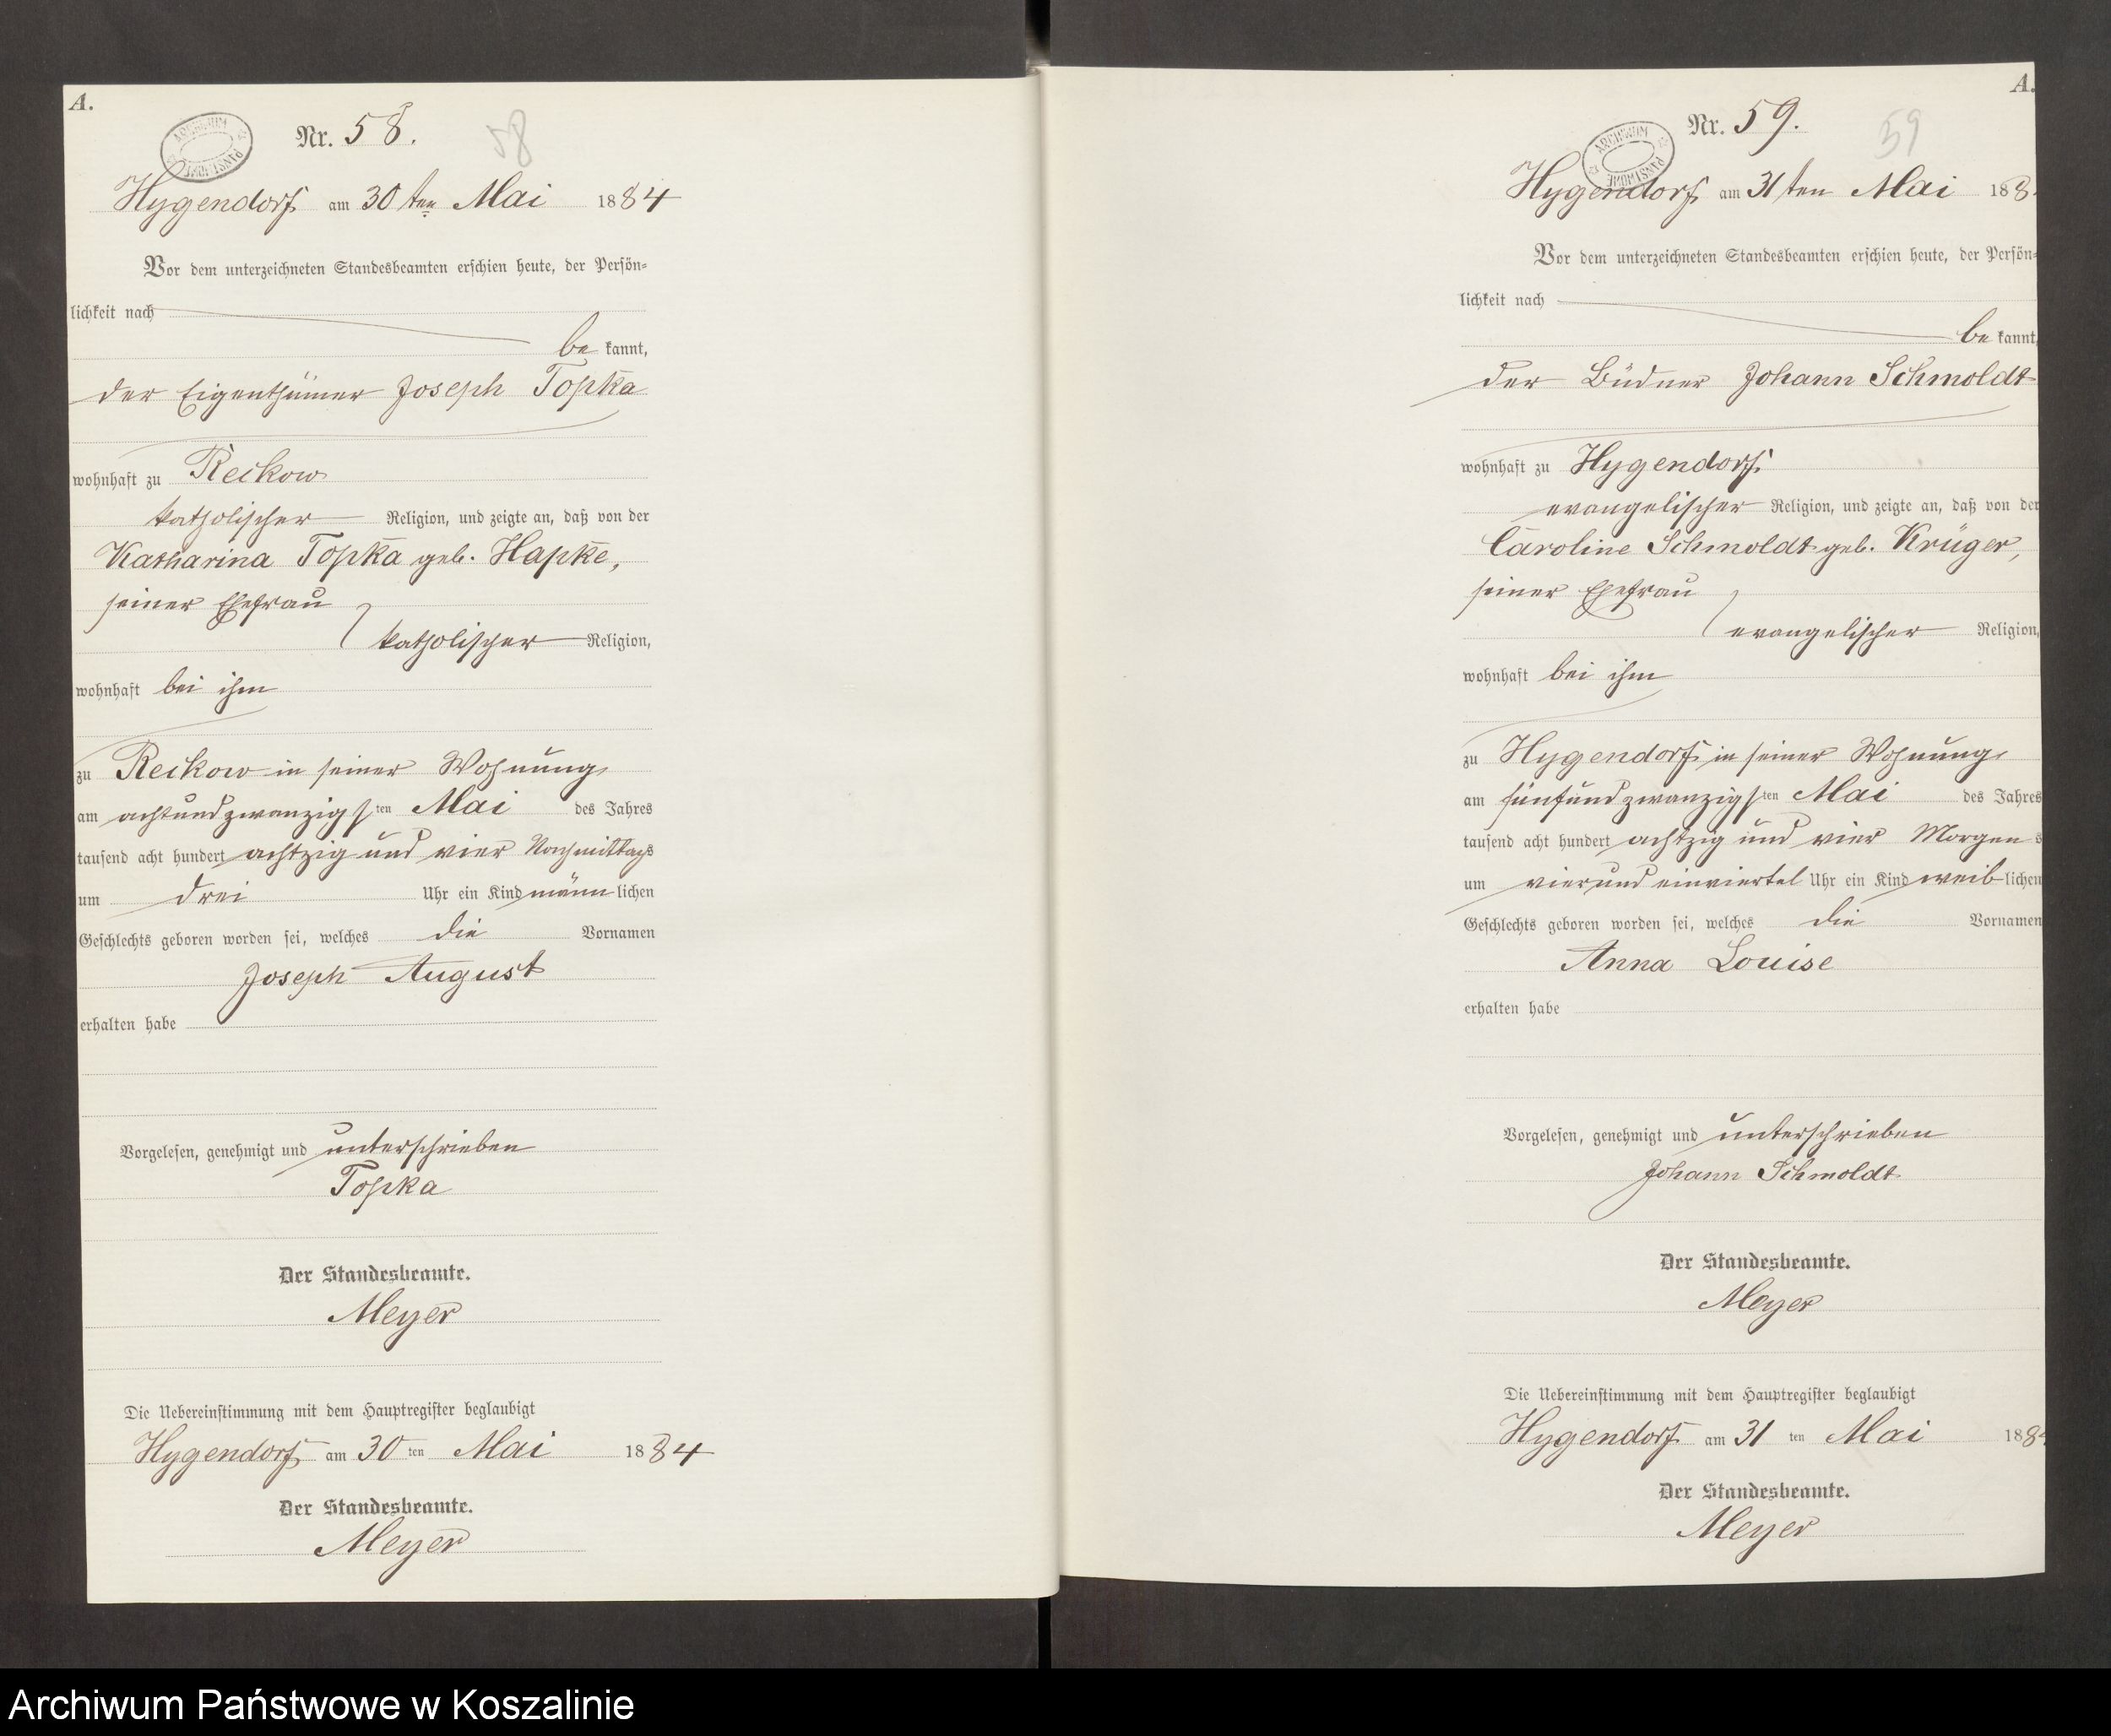 A.
ARCHIWUM PAŃSTWOWE
Nr. 58.
58
Hygendorf am 30 ten Mai 1884
Vor dem unterzeichneten Standesbeamten erschien heute, der Persön-
lichkeit nach
be kannt,
der Eigenthümer Joseph Topka
wohnhaft zu Reckow
katholischer Religion, und zeigte an, daß von der
Katharina Topka geb. Hapke,
seiner Ehefrau
katholischer Religion,
wohnhaft bei ihm
zu Reckow in seiner Wohnung
am achtundzwanzigsten Mai des Jahres
tausend acht hundert achtzig und vier Nachmittags
um drei Uhr ein Kind männlichen
Geschlechts geboren worden sei, welches die Vornamen
Joseph August
erhalten habe
Vorgelesen, genehmigt und unterschrieben
Topka
Der Standesbeamte.
Meyer
Die Uebereinstimmung mit dem Hauptregister beglaubigt
Hygendorf am 30 ten Mai 1884
Der Standesbeamte.
Meyer
A.
ARCHIWUM PAŃSTWOWE
Nr. 59.
59
Hygendorf am 31 ten Mai 188
Vor dem unterzeichneten Standesbeamten erschien heute, der Persön-
lichkeit nach
be kannt,
der Büdner Johann Schmoldt
wohnhaft zu Hygendorf
evangelischer Religion, und zeigte an, daß von der
Caroline Schmoldt geb. Krüger,
seiner Ehefrau
evangelischer Religion,
wohnhaft bei ihm
zu Hygendorf in seiner Wohnung
am fünfundzwanzigsten Mai des Jahres
tausend acht hundert achtzig und vier Morgens
um vier und einviertel Uhr ein Kind weiblichen
Geschlechts geboren worden sei, welches die Vornamen
Anna Louise
erhalten habe
Vorgelesen, genehmigt und unterschrieben
Johann Schmoldt
Der Standesbeamte.
Meyer
Die Uebereinstimmung mit dem Hauptregister beglaubigt
Hygendorf am 31 ten Mai 188
Der Standesbeamte.
Meyer
Archiwum Państwowe w Koszalinie